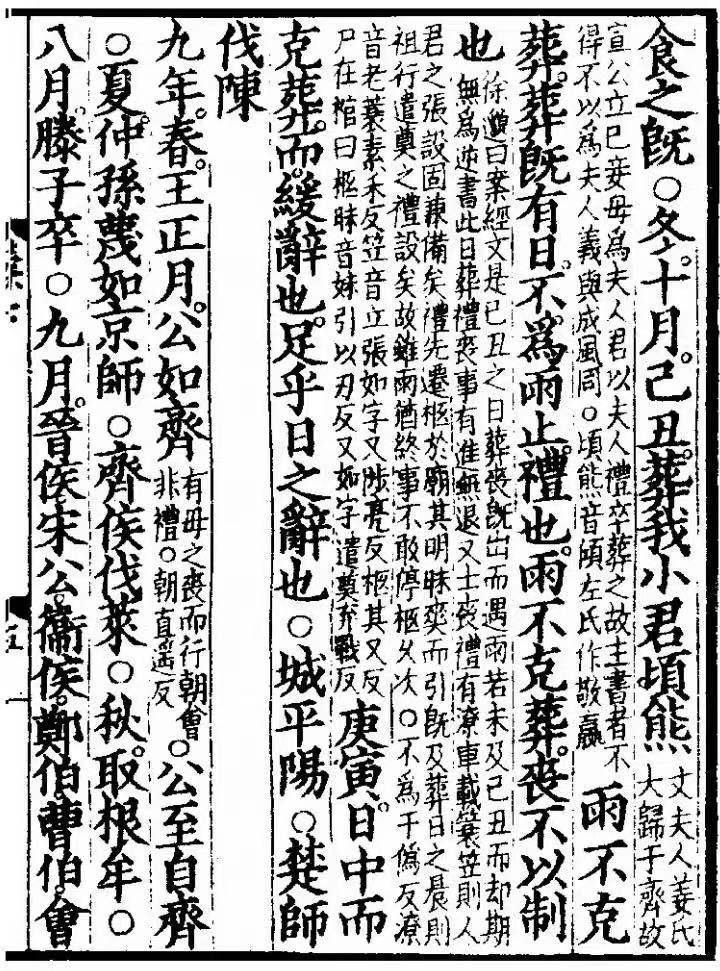 食之既○冬。十月。己丑。葬我小君頃熊
文夫人姜氏
大歸于齊故
宣公立己妾母爲夫人君以夫人禮卒葬之故主書者不
得不以爲夫人義與成風同○頃熊音傾左氏作敬嬴
雨不克
葬。葬既有日。不爲雨止。禮也。雨不克葬。喪不以制
也
徐邈曰案經文是己丑之日葬喪既出而遇雨若未及己丑而却期
無爲逆書此日葬禮喪事有進無退又士喪禮有潦車載蓑笠則人
君之張設固兼備矣禮先遷柩於廟其明昧爽而引既及葬日之晨則
祖行遣奠之禮設矣故雖雨猶終事不敢停柩乆次○不爲于僞反潦
音老蓑素禾反笠音立張如字又陟亮反柩其又反
尸在棺曰柩昧音妹引以刃反又如字遣奠弃戰反
庚寅。日中而
克葬。而。緩辭也。足乎日之辭也○城平陽○楚師
伐陳
九年。春。王正月。公如齊
有母之喪而行朝會
非禮○朝直遥反
○公至自齊
○夏。仲孫蔑如京師○齊侯伐萊○秋。取根牟○
八月。滕子卒○九月。晉侯。宋公。衞侯。鄭伯。曹伯。會